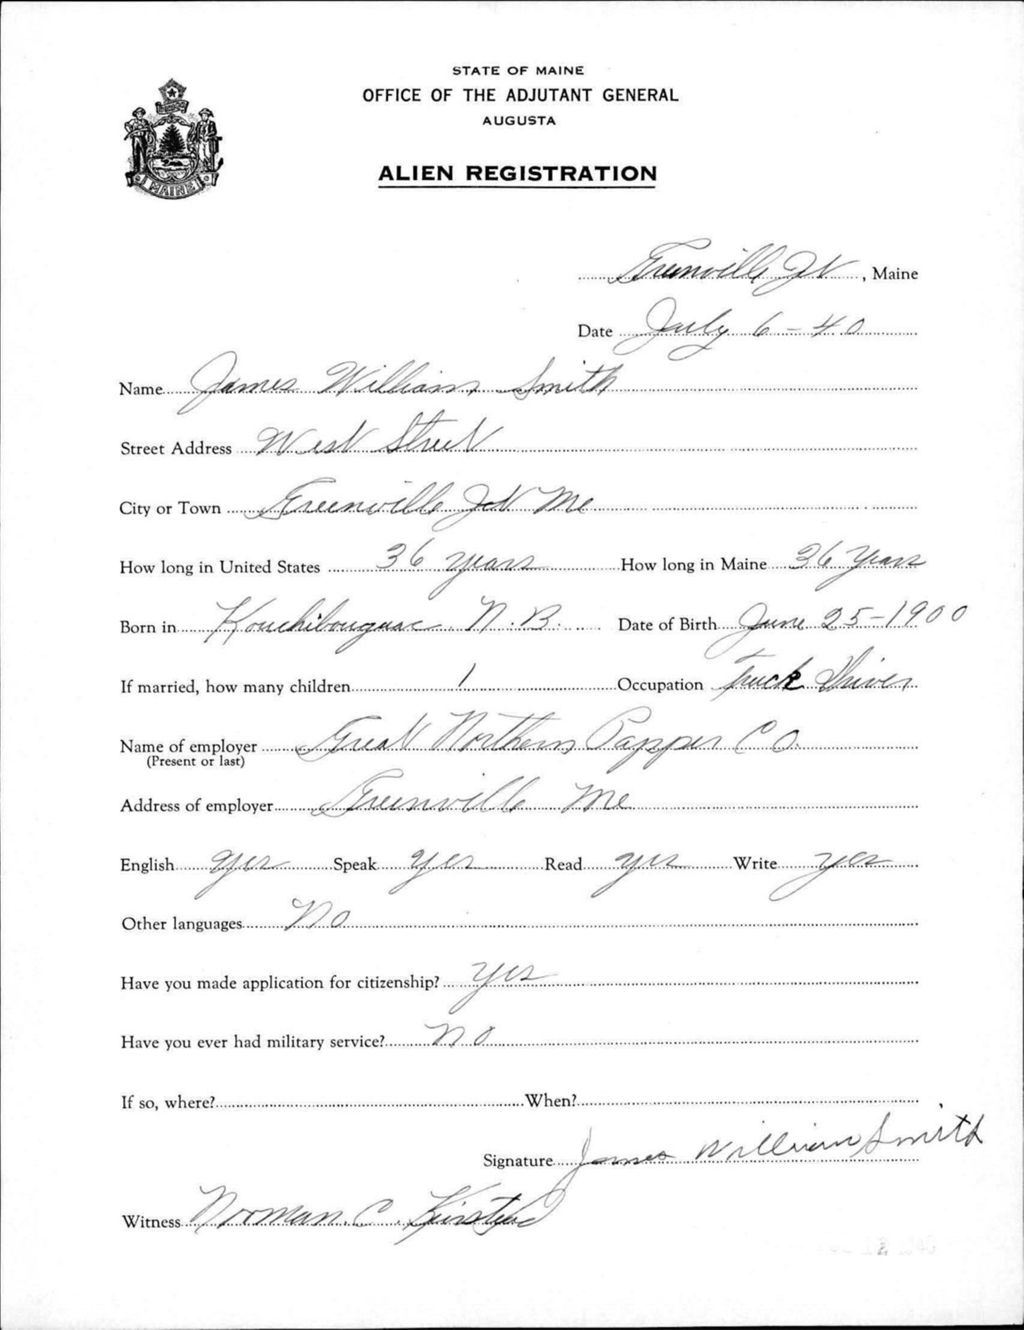 STATE OF MAINE
OFFICE OF THE ADJUTANT GENERAL
AUGUSTA
ALIEN REGISTRATION
MAINE
Greenville Jct, Maine
Date July 6-40
Name James William Smith
Street Address West Street
City or Town Greenville Jct Me
How long in United States 36 years How long in Maine 36 Years
Born in Kouchibouguac N.B. Date of Birth June 25-1900
If married, how many children 1 Occupation Truck Driver
Name of employer Great Northern Papper Co.
(Present or last)
Address of employer Greenville Me
English Yes Speak Yes Read yes Write yes
Other languages No
Have you made application for citizenship? Yes
Have you ever had military service? No
If so, where? When?
Signature James William Smith
Witness Norman C.